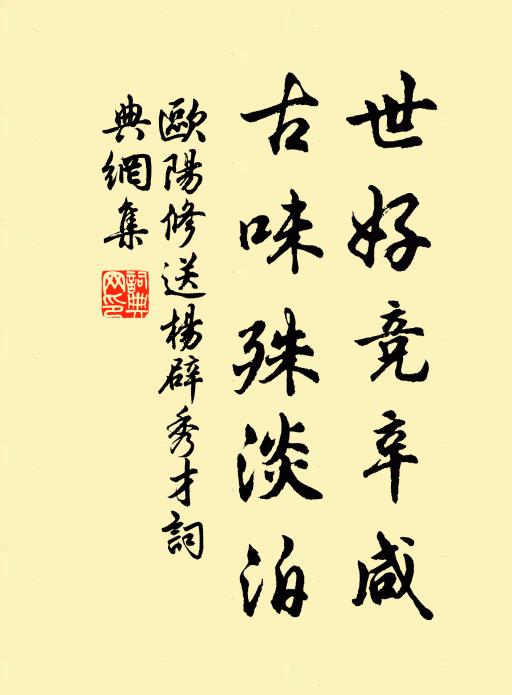 世好竞辛咸
古味殊淡泊
歐陽修送楊辟秀才詞
典網集
詞典網印